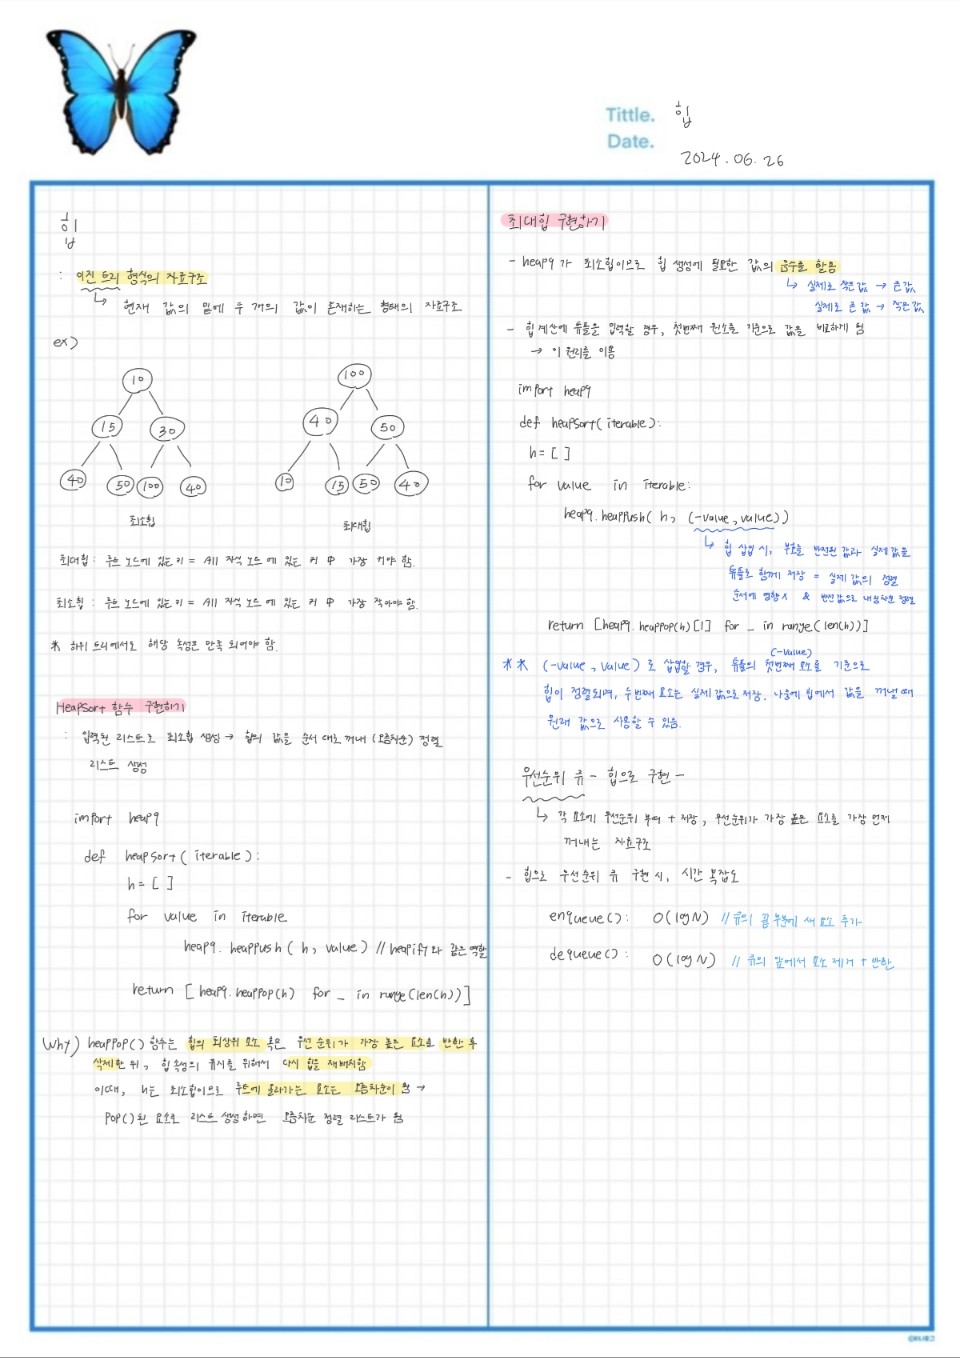 Tittle. 힙
Date.
2024.06.26
힙
: 이진 트리 형식의 자료구조
↳ 현재 값의 밑에 두 개의 값이 존재하는 형태의 자료구조
ex)
10
15 30
40 50 100 40
최소힙
100
40 50
10 15 50 40
최대힙
최대힙 : 루트 노드에 있는 키 = All 자식 노드에 있는 키 中 가장 커야 함.
최소힙 : 루트 노드에 있는 키 = All 자식 노드에 있는 키 中 가장 작아야 함.
* 하위 트리에서도 해당 속성은 만족 되어야 함.
HeapSort 함수 구현하기
: 입력된 리스트로 최소힙 생성 → 힙의 값을 순서 대로 꺼내 (오름차순) 정렬
리스트 생성
import heapq
def heapsort( iterable ) :
h = [ ]
for value in iterable
heapq. heappush ( h, value ) // heapify와 같은 역할
return [ heapq. heappop(h) for _ in range(len(h)) ]
Why) heappop() 함수는 힙의 최상위 요소 혹은 우선 순위가 가장 높은 요소를 반환 후
삭제한 뒤, 힙 속성의 유지를 위해서 다시 힙을 재배치함
이때, h는 최소힙이므로 루트에 올라가는 요소는 오름차순이 됨 →
pop()된 요소로 리스트 생성하면 오름차순 정렬 리스트가 됨
최대힙 구현하기
- heapq가 최소힙이므로 힙 생성에 필요한 값의 음수를 할용
↳ 실제로 작은 값 → 큰 값
실제로 큰 값 → 작은 값
- 힙 계산에 튜플을 입력할 경우, 첫번째 원소를 기준으로 값을 비교하게 됨
→ 이 원리를 이용
import heapq
def heapsort( iterable ):
h = [ ]
for value in iterable:
heapq.heappush( h, (-value, value))
↳ 힙 삽입 시, 부호를 반전된 값과 실제 값을
튜플로 함께 저장 = 실제 값의 정렬
순서에 영향 X & 반전 값으로 내림차순 정렬
return [heapq.heappop(h)[1] for _ in range(len(h))]
(-value)
** (-value, value) 로 삽입할 경우, 튜플의 첫번째 요소를 기준으로
힙이 정렬되며, 두번째 요소는 실제 값으로 저장. 나중에 힙에서 값을 꺼낼 때
원래 값으로 사용할 수 있음.
우선순위 큐 - 힙으로 구현 -
↳ 각 요소에 우선순위 부여 + 저장, 우선순위가 가장 높은 요소를 가장 먼저
꺼내는 자료구조
- 힙으로 우선순위 큐 구현 시, 시간 복잡도
enqueue() : O(logN) // 큐의 끝 부분에 새 요소 추가
dequeue() : O(logN) // 큐의 앞에서 요소 제거 + 반환